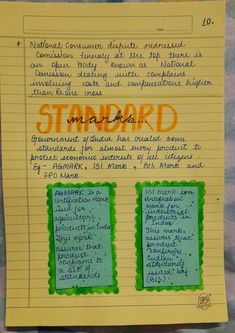 10.
National Consumer dispute redressed
Comission Finnaly at the top there is
an apex body known as National
Comission dealing with complains
involving costs and compensations higher
than Rs one crore
STANDARD
marks...
Government of India has created some
standards for almost every product to
protect economic interests of all citizens.
Eg- AGMARK, ISI Mark, BIS Mark and
FPO Mark.
AGMARK is a
certification mark
used for
agriculture
products in India
This mark
assures that
product
conforms to
a set of
standards
ISI mark is a
certification
mark for
industrial
products in
India
This mark
assures that
product
conforms
Indian
standards
issued by
(BIS)